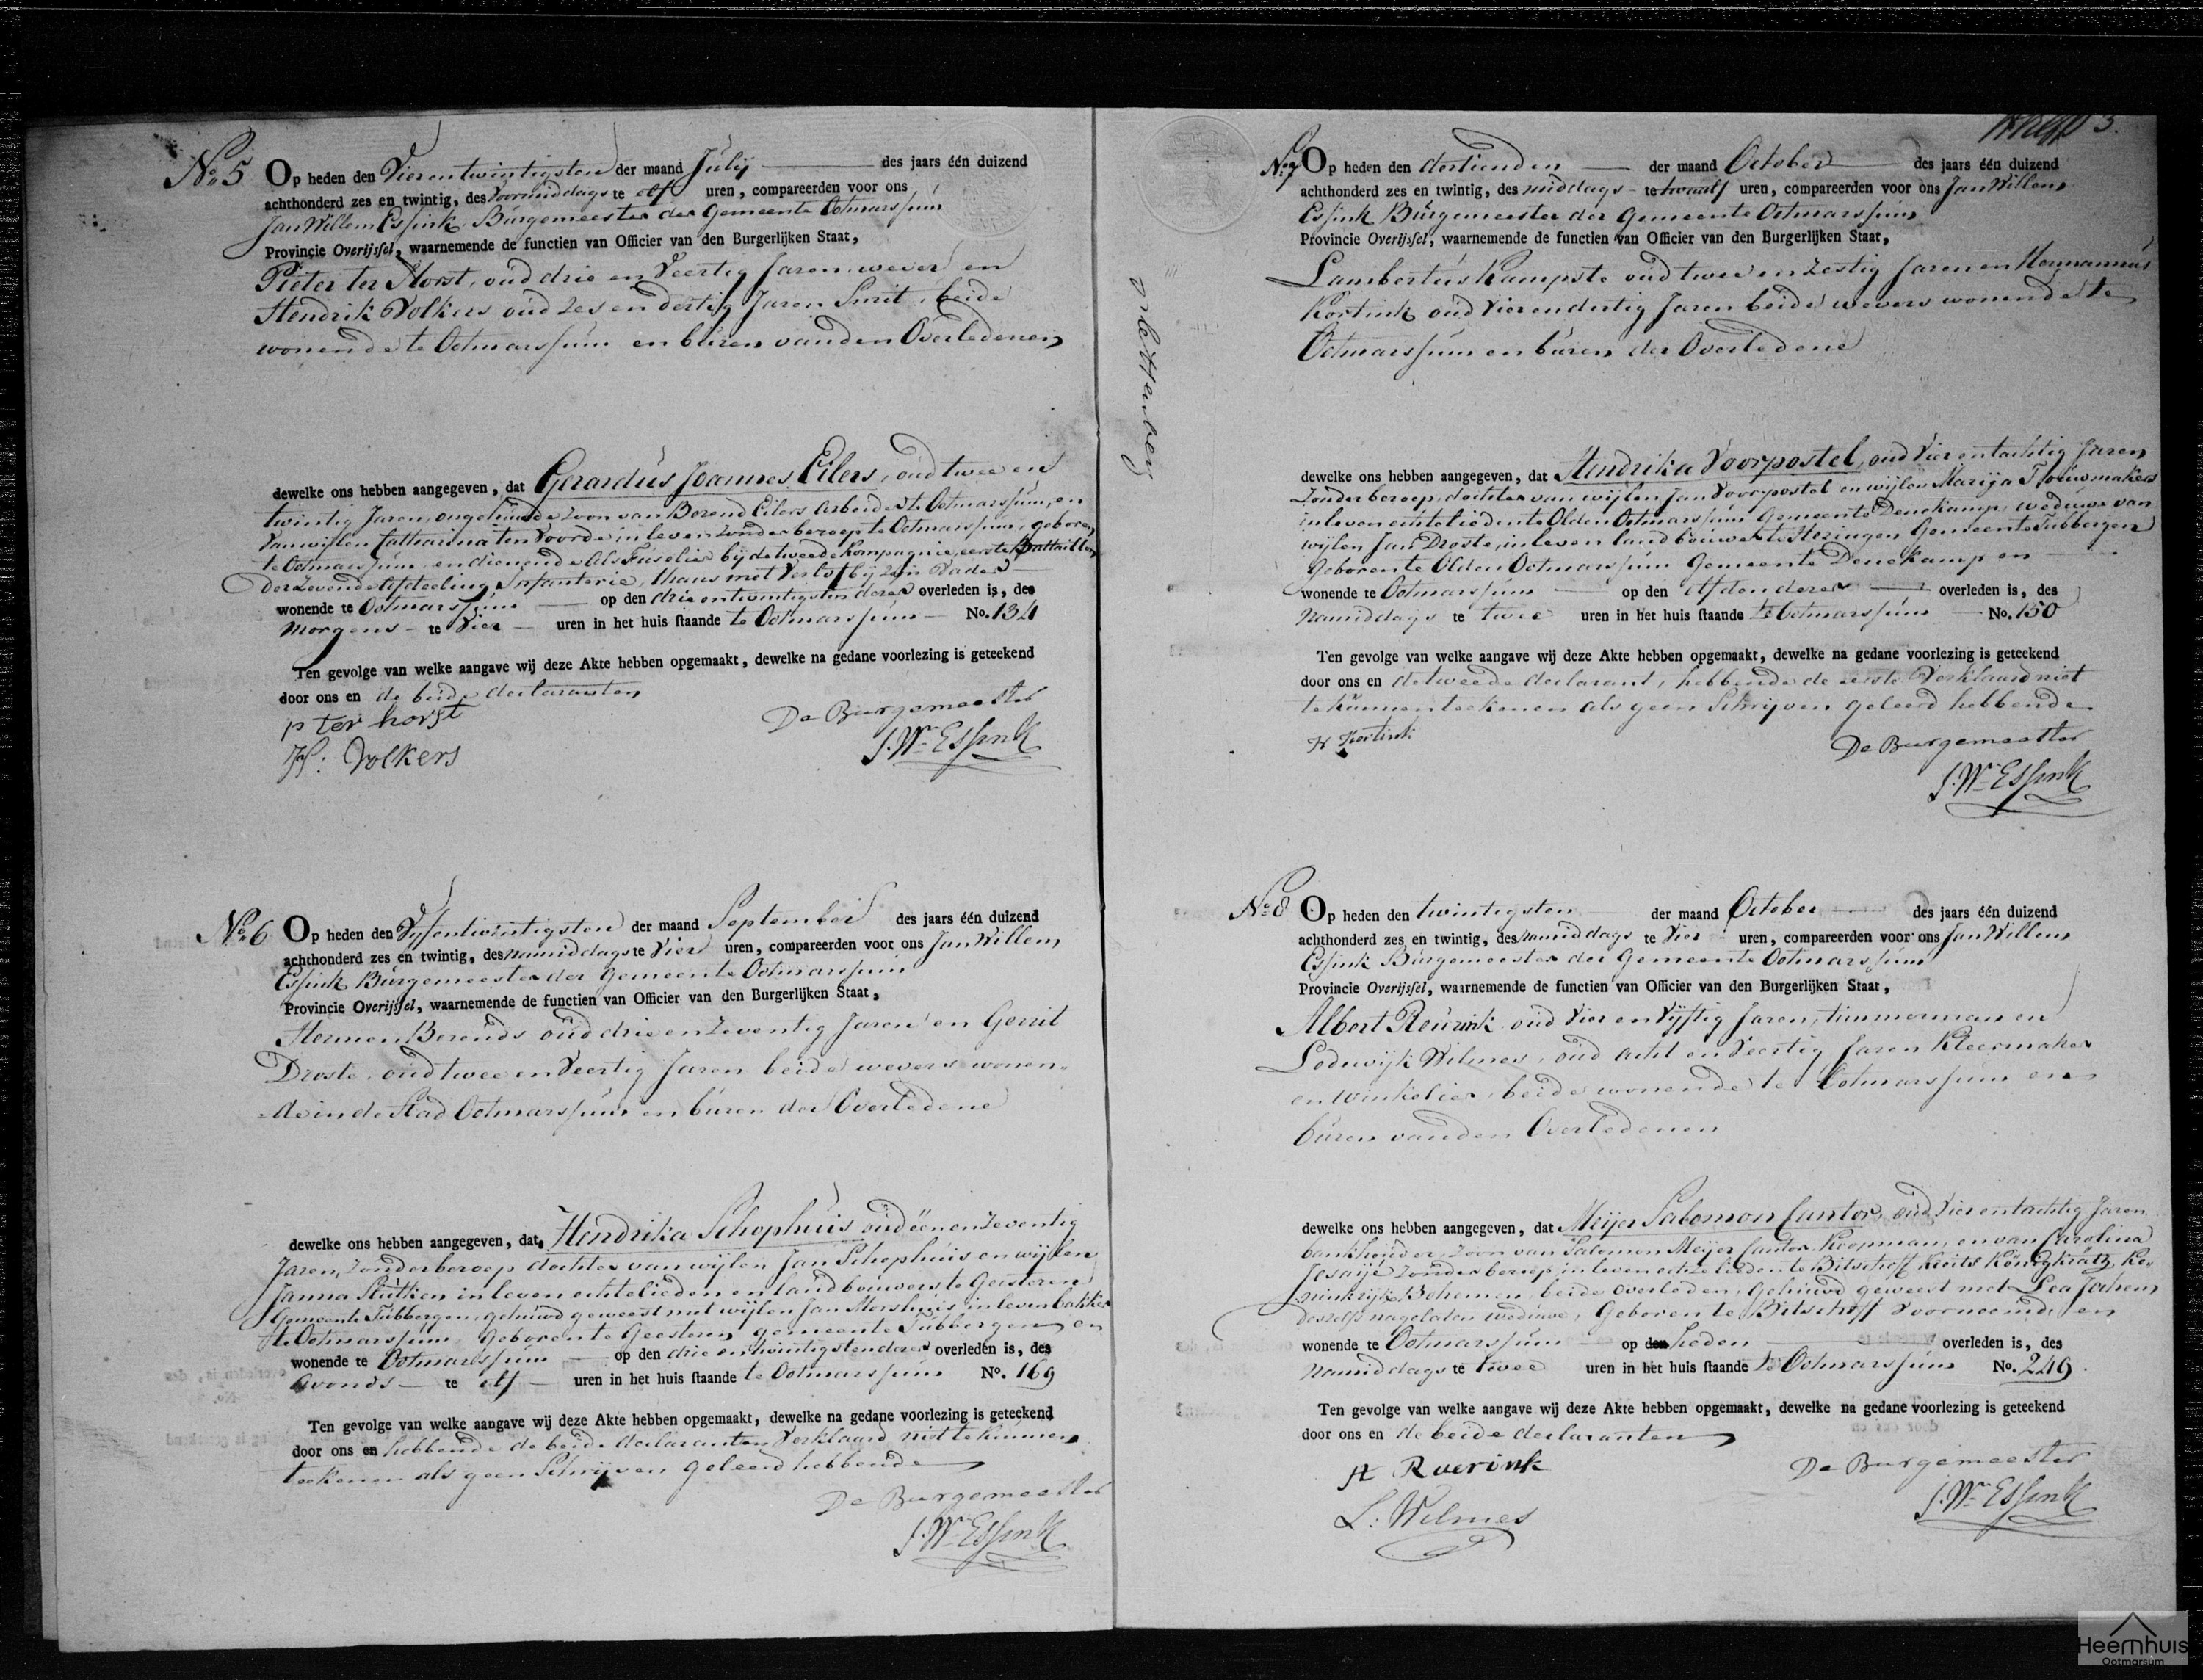 No. 5 Op heden den Vierentwintigsten der maand Julij des jaars één duizend
achthonderd zes en twintig, des voormiddags te elf uren, compareerden voor ons
Jan Willem Essink Burgemeester der Gemeente Ootmarssum
Provincie Overijssel, waarnemende de functien van Officier van den Burgerlijken Staat,
Pieter ter Horst, oud drie en Veertig Jaren wever en
Hendrik Volkers oud zes en dertig Jaren Smit, beide
wonende te Ootmarssum en buren van den Overledenen
dewelke ons hebben aangegeven, dat Gerardus Joannes Eilers, oud twee en
twintig Jaren, ongehuwde zoon van Berend Eilers Arbeider te Ootmarssum, en
van wijlen Catharina ten Voorde in leven zonder beroep te Ootmarssum, geboren
te Ootmarssum en dienende als Fuselier bij de tweede kompagnie, eerste Battaillon
der zevende Afdeeling Infanterie, thans met Verlof bij zijn Vader
wonende te Ootmarssum op den drie entwintigsten dezer overleden is, des
Morgens te Vier uren in het huis staande te Ootmarssum No. 134
Ten gevolge van welke aangave wij deze Akte hebben opgemaakt, dewelke na gedane voorlezing is geteekend
door ons en de beide declaranten
p ter horst
H: Volkers
De Burgemeester
J. W. Essink
No. 6 Op heden den Vyfentwintigsten der maand September des jaars één duizend
achthonderd zes en twintig, des namiddags te Vier uren, compareerden voor ons Jan Willem
Essink Burgemeester der Gemeente Ootmarssum
Provincie Overijssel, waarnemende de functien van Officier van den Burgerlijken Staat,
Hermen Berends oud drie en Zeventig Jaren en Gerrit
Droste, oud twee en Veertig Jaren beide wevers wonen-
de in de Stad Ootmarssum en buren der Overledene
dewelke ons hebben aangegeven, dat Hendrika Schophuis oud één en Zeventig
Jaren, Zonder beroep dochter van wijlen Jan Schophuis en wijlen
Janna Slütken in leven echtelieden en landbouwers te Geisteren
Gemeente Tubbergen, gehuwd geweest met wijlen Jan Morshuis in leven bakker
te Ootmarssum geboren te Geesteren gemeente Tubbergen en
wonende te Ootmarssum op den drie en twintigsten dezer overleden is, des
Avonds te elf uren in het huis staande te Ootmarssum No. 169
Ten gevolge van welke aangave wij deze Akte hebben opgemaakt, dewelke na gedane voorlezing is geteekend
door ons en hebbende de beide declaranten Verklaard niet te kunnen
teekenen als geen Schrijven geleerd hebbende
De Burgemeester
J. W. Essink
3.
No. 7 Op heden den dertienden der maand October des jaars één duizend
achthonderd zes en twintig, des middags te twaalf uren, compareerden voor ons Jan Willem
Essink Burgemeester der Gemeente Ootmarssum
Provincie Overijssel, waarnemende de functien van Officier van den Burgerlijken Staat,
Lambertus Kampste oud twee en Zestig Jaren en Hermannus
Kortink oud Vierendertig Jaren beide wevers wonende te
Ootmarssum en buren der Overledene
dewelke ons hebben aangegeven, dat Hendrika Voorpostel, oud Vier entachtig Jaren
Zonder beroep, dochter van wijlen Jan Voorpostel en wijlen Marija Trouwmakers
in leven echtelieden te Olden Ootmarssum Gemeente Denekamp, weduwe van
wijlen Jan Droste, in leven landbouwer te Hezingen Gemeente Tubbergen
Geboren te Olden Ootmarssum Gemeente Denekamp en
wonende te Ootmarssum op den elfden dezer overleden is, des
Namiddags te twee uren in het huis staande te Ootmarssum No. 150
Ten gevolge van welke aangave wij deze Akte hebben opgemaakt, dewelke na gedane voorlezing is geteekend
door ons en de tweede declarant, hebbende de eerste Verklaard niet
te kunnen teekenen als geen Schrijven geleerd hebbende
H Kortink
De Burgemeester
J. W. Essink
No. 8 Op heden den twintigsten der maand October des jaars één duizend
achthonderd zes en twintig, des namiddags te Vier uren, compareerden voor ons Jan Willem
Essink Burgemeester der Gemeente Ootmarssum
Provincie Overijssel, waarnemende de functien van Officier van den Burgerlijken Staat,
Albert Reurink oud Vier en Vijftig Jaren, timmerman en
Lodewijk Wilmes, oud acht en Veertig Jaren Kleermaker
en winkelier, beide wonende te Ootmarssum en
buren van den Overledenen
dewelke ons hebben aangegeven, dat Meijer Salomon Cantor, oud Vier entachtig Jaren
bankhouder, Zoon van Salomon Meijer Cantor Koopman, en van Carolina
Jesaijé Zonder beroep in leven echtelieden te Bitschoff Kreits Königkrätz, Ko-
ninkrijk Bohemen, beide overleden, gehuwd geweest met Lea Jochem
deszelfs nagelaten weduwe, Geboren te Bitschoff Voornoemd, en
wonende te Ootmarssum op den heden overleden is, des
Namiddags te twee uren in het huis staande te Ootmarssum No. 249
Ten gevolge van welke aangave wij deze Akte hebben opgemaakt, dewelke na gedane voorlezing is geteekend
door ons en de beide declaranten
A Ruerink
L: Wilmes
De Burgemeester
J. W. Essink
Heemhuis
Ootmarsum